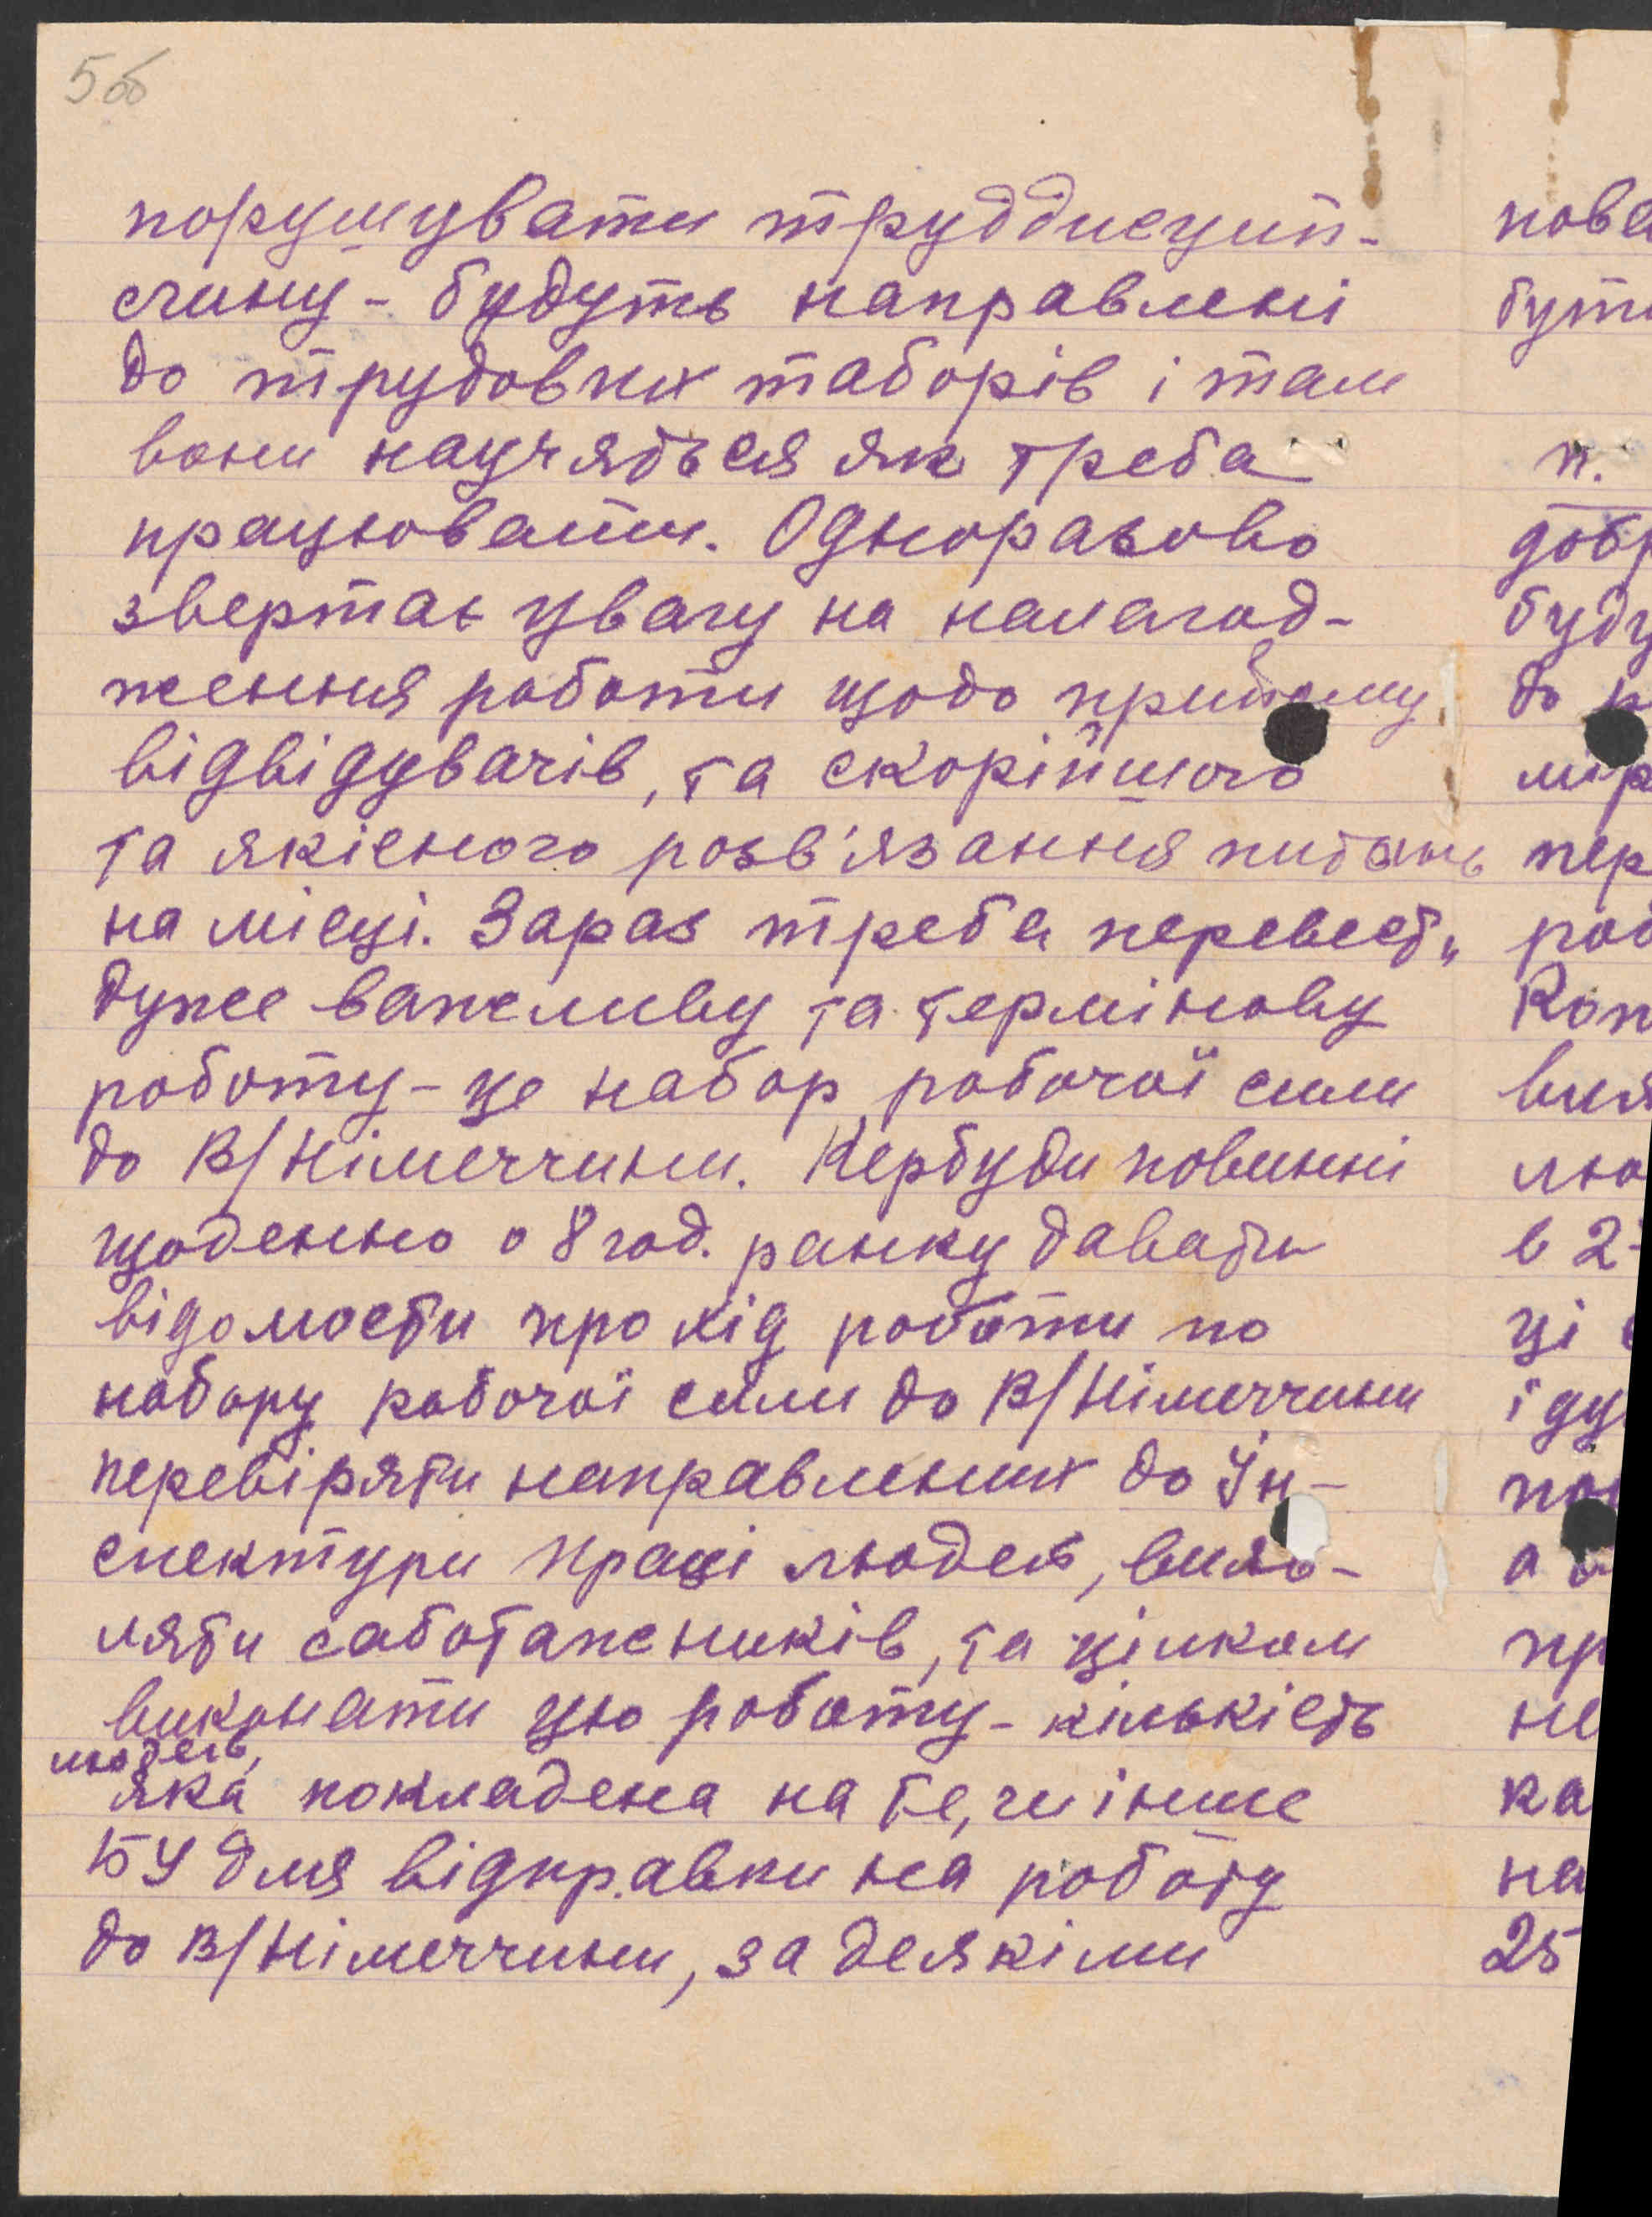 5об
порушувати труддисцип-
сліну - будуть направлені
до трудових таборів і там
вони научяться як треба
працювати. Одноразово
звертає увагу на налагод-
ження роботи щодо прийому
відвідувачів, та скорійшого
та якісного розв'язання питань
на місці. Зараз треба перевести
дуже важливу та термінову
роботу - це набор робочої сили
до В/Німеччини. Кербуди повинні
щоденно о 8 год. ранку давати
відомости про хід роботи по
набору робочої сили до В/Німеччини
перевіряти направлених до Ін-
спектури праці людей, вияв-
ляти саботажників, та цілком
виконати цю роботу - кількість
людей,
яка покладена на те, чи інше
БУ для відправки на роботу
до В/Німеччини, за деякіми
пове
бути
п.
добр
буду
до р
мір
пер
роб
Ком
вия
лю
в 2-
ці
іду
а
пр
не
ка
на
25